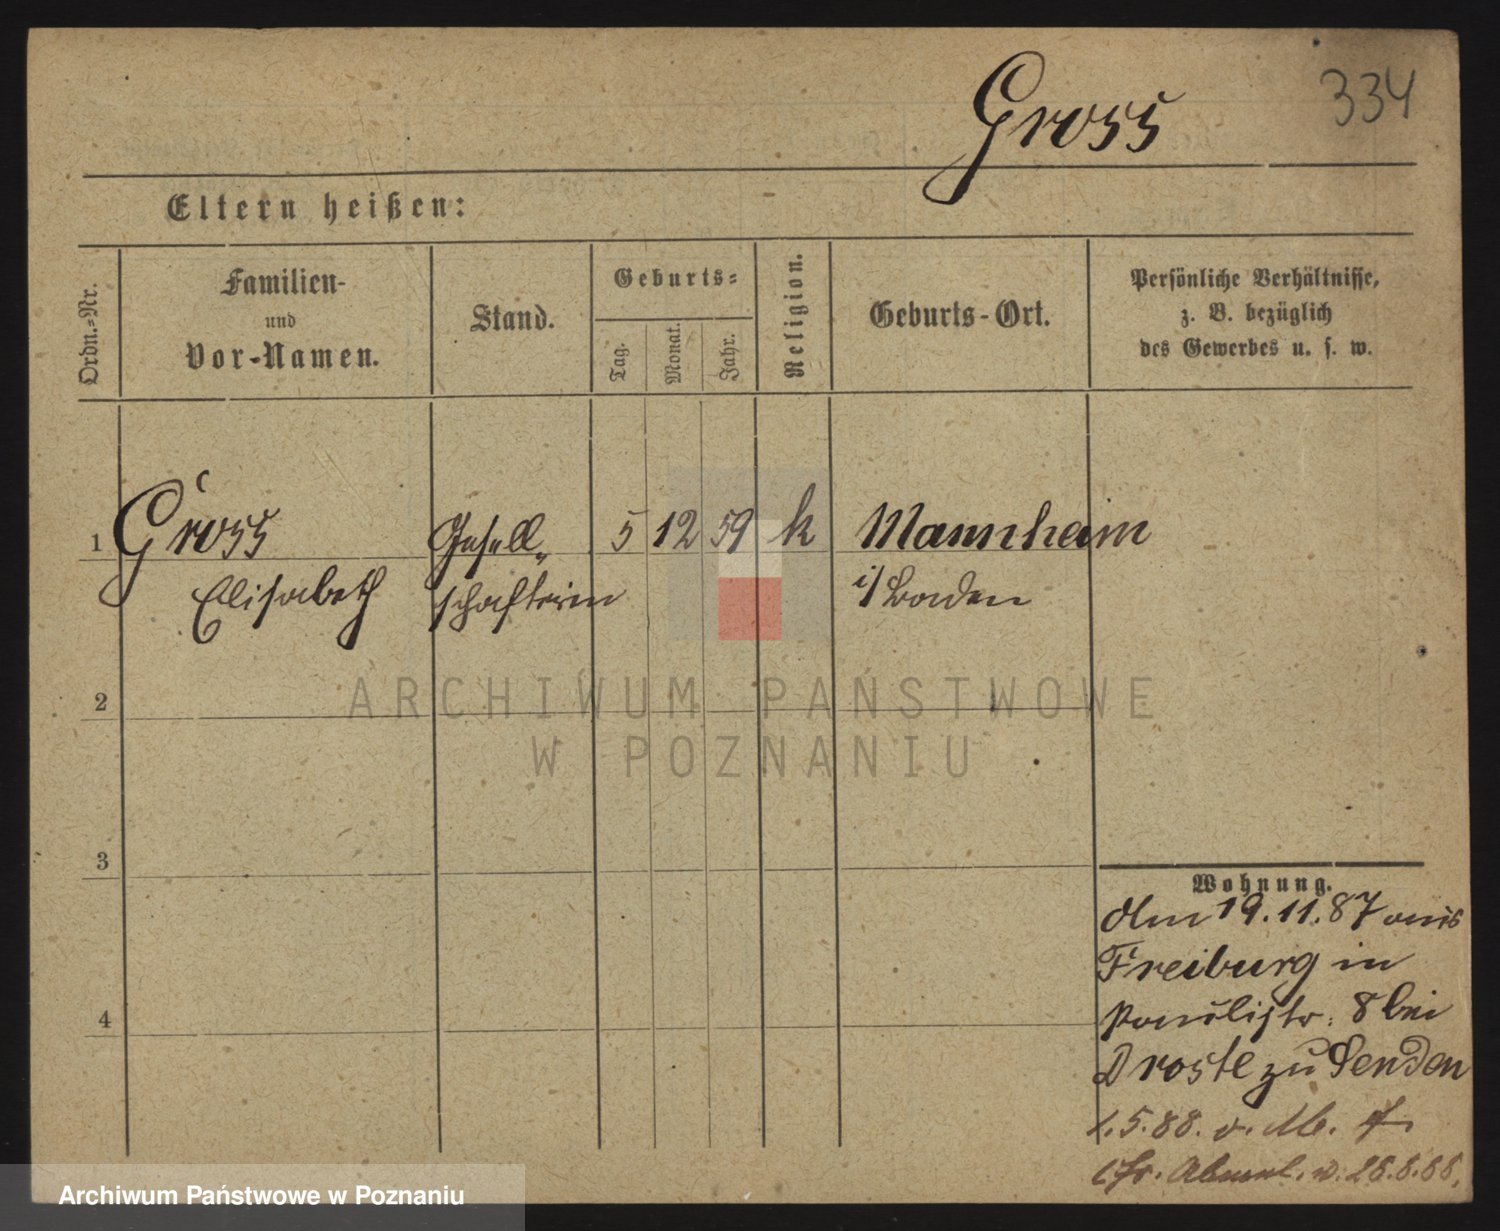 Gross 334
Eltern heißen:
Ordn.=Nr.
Familien-
und
Vor-Namen.
Stand.
Geburts=
Tag.
Monat.
Jahr.
Religion.
Geburts-Ort.
Persönliche Verhältnisse,
z. B. bezüglich
des Gewerbes u. s. w.
1 Gross Gesell- 5 12 59 k Mannheim
Elisabeth schafterin i/ Baden
2
3
4
Wohnung.
Am 19.11.87 aus
Freiburg in
Paulistr. 8 bei
Droste zu Senden
1.5.88. v. M.
Abmel. v. 28.8.88.
ARCHIWUM PAŃSTWOWE
W POZNANIU
Archiwum Państwowe w Poznaniu